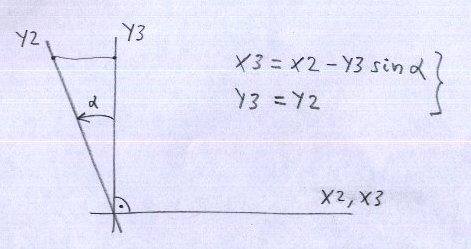 Y2
Y3
α
X3 = X2 - Y3 sin α
Y3 = Y2
X2, X3